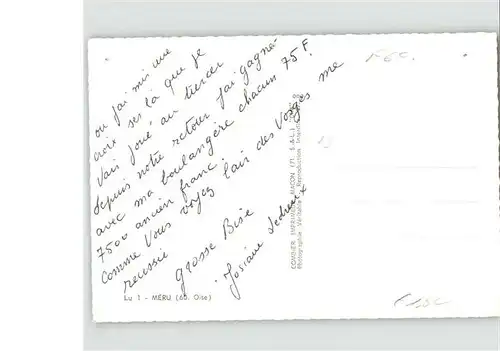 ou j'ai mis une
croix ses là que je
Vais joué au tiercer
depuis notre retour j'ai gagné
avec ma boulangère chacun 75 F.
7500 ancien franc.
comme vous voyez l'air des Vosges me
reussie
grosse Bise
Josiane
Lu 1 - MÉRU (60. Oise)
COMBIER IMPRIMEUR MACON (71. S.-&-L.)
Photographie Véritable - Reproduction Interdite